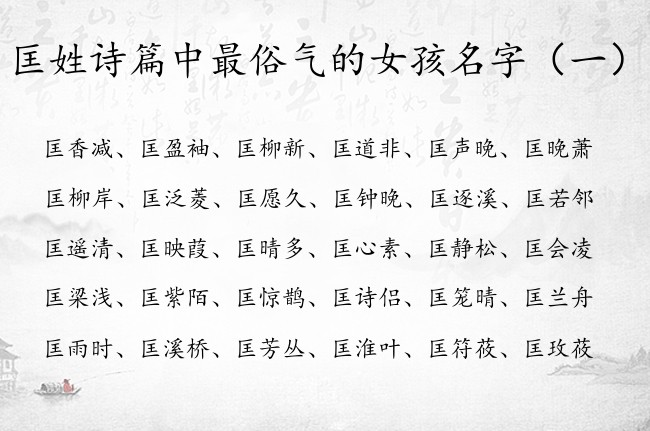 匡姓诗篇中最俗气的女孩名字（一）
匡香减、匡盈袖、匡柳新、匡道非、匡声晚、匡晚萧
匡柳岸、匡泛菱、匡愿久、匡钟晚、匡逐溪、匡若邻
匡遥清、匡映葭、匡晴多、匡心素、匡静松、匡会凌
匡梁浅、匡紫陌、匡惊鹊、匡诗侣、匡笼晴、匡兰舟
匡雨时、匡溪桥、匡芳丛、匡淮叶、匡符莜、匡玫莜